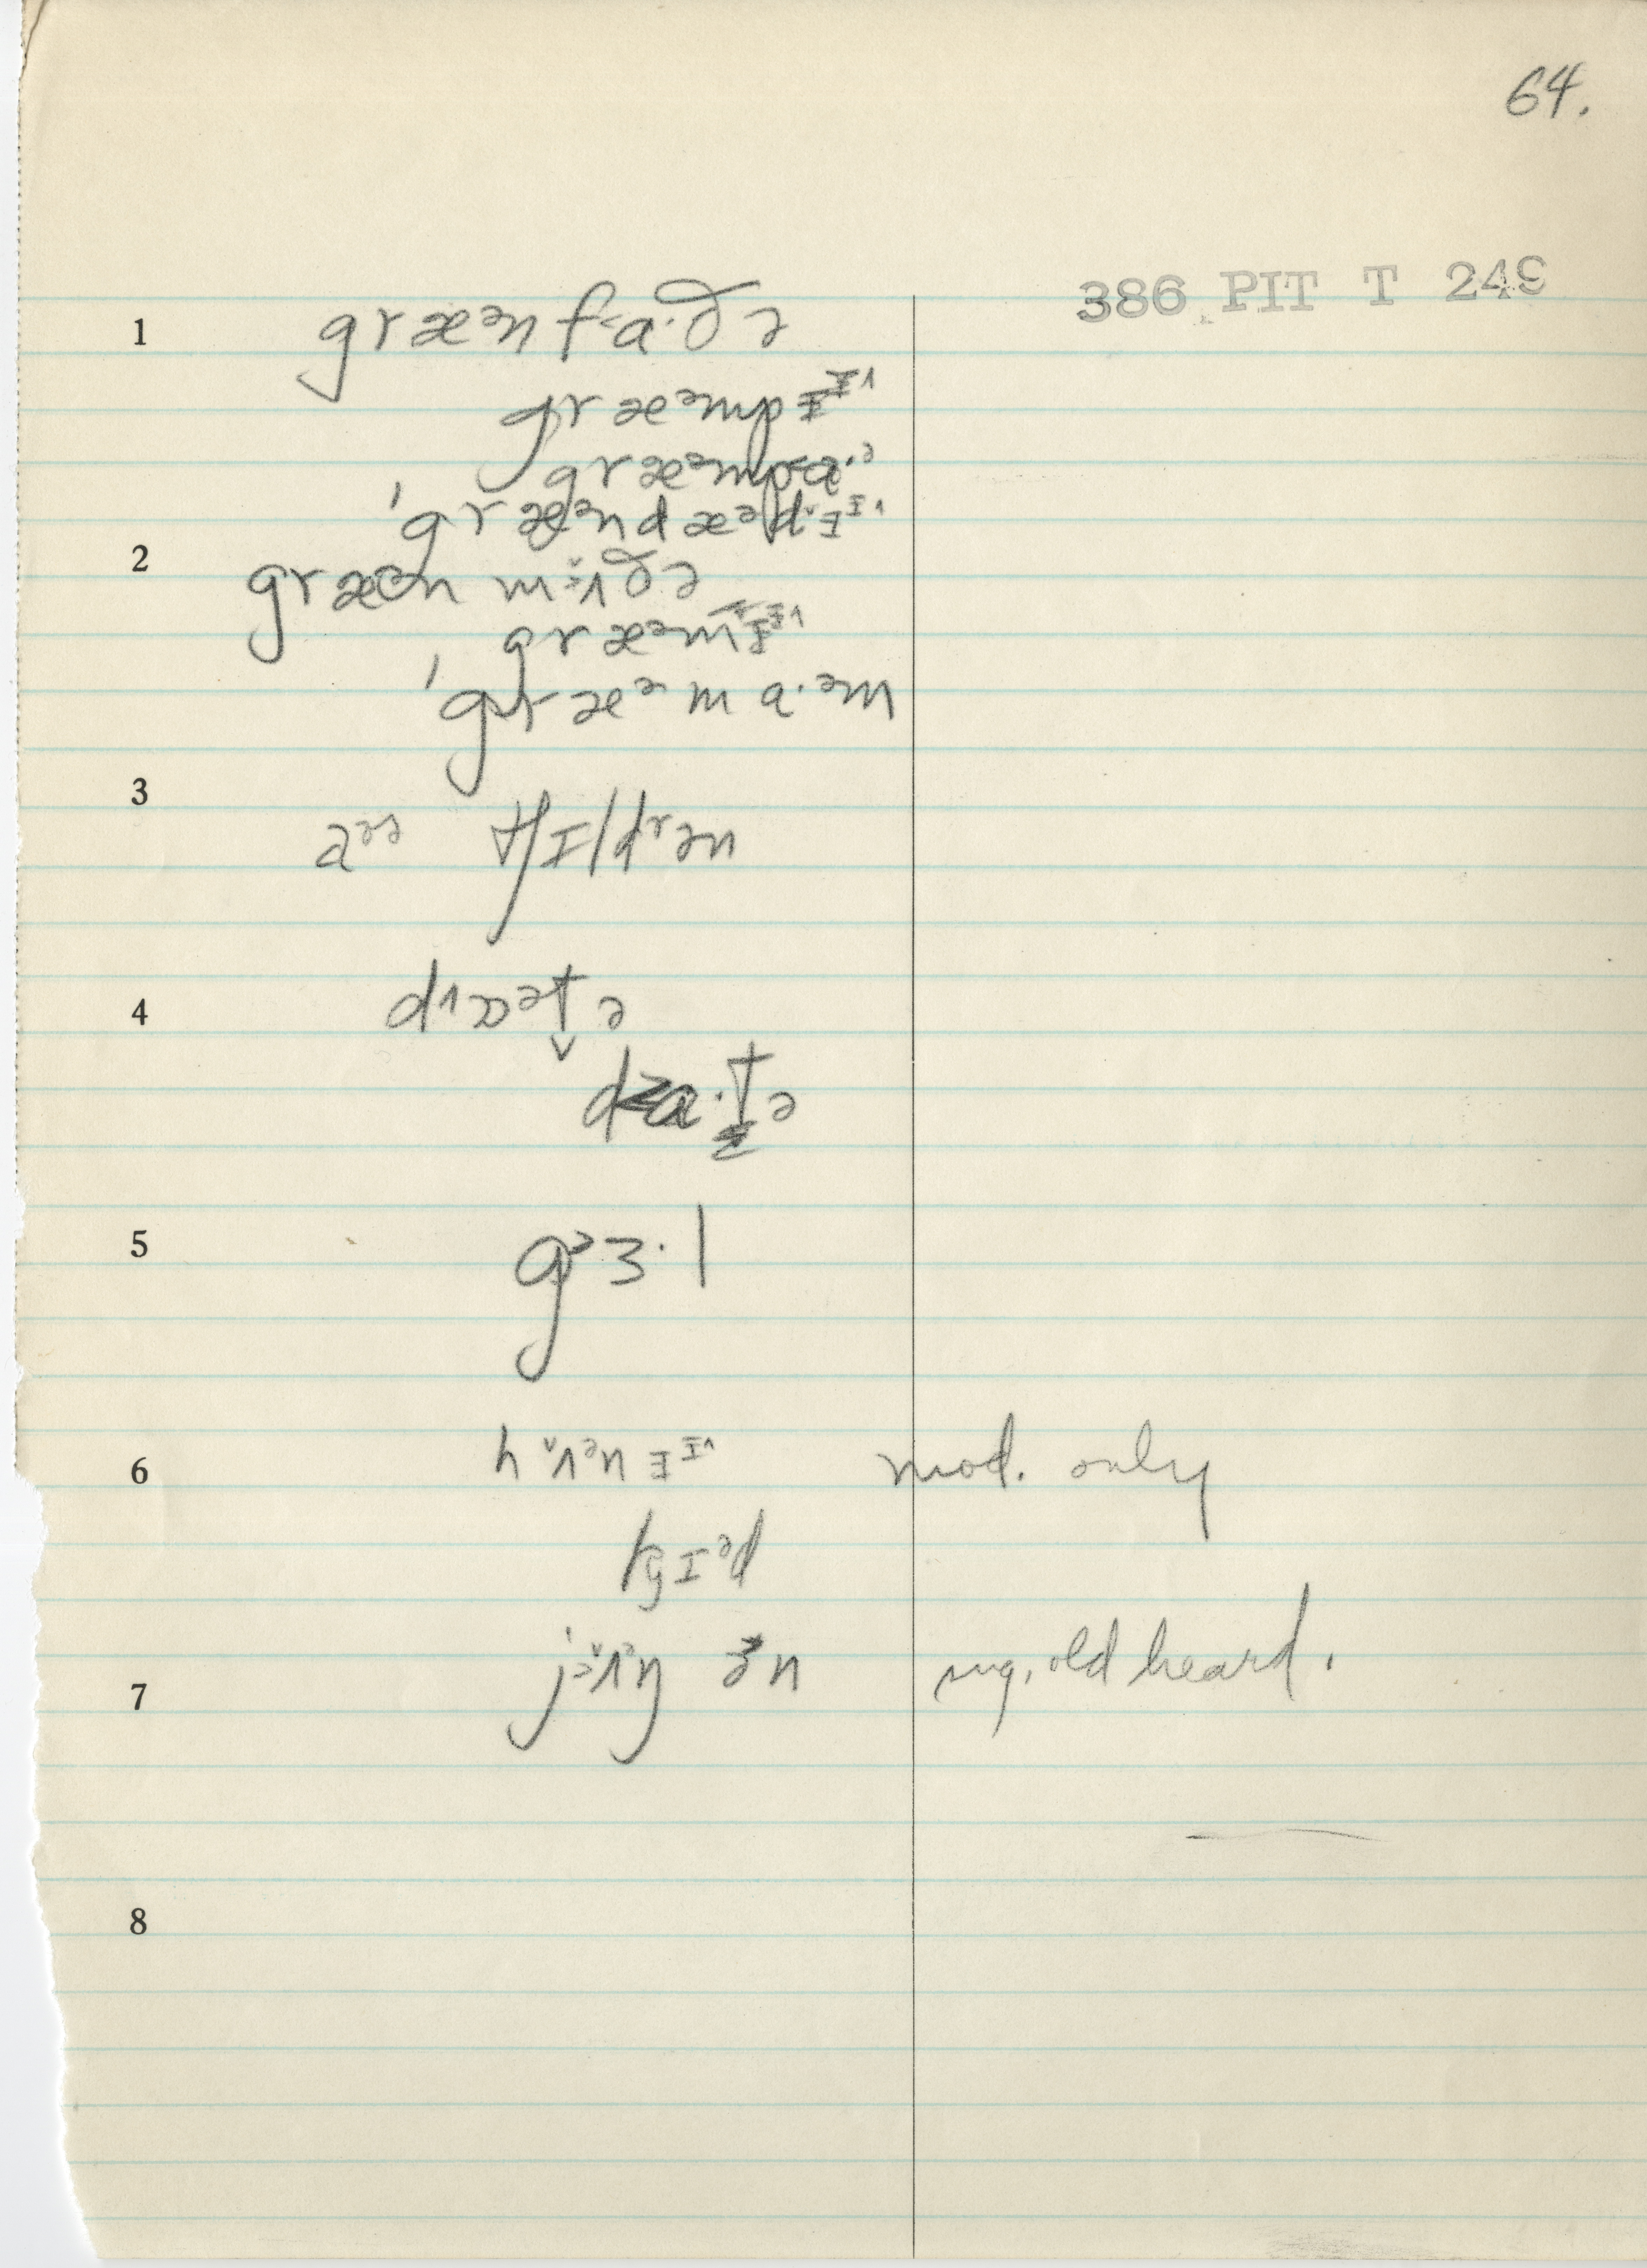 64.
386 PIT T 249
1 græᵊn f˂a·ðə
græᵊmpɪᶦ˄
græᵊmp˂a·ᵊ
ˈgræᵊndæᵊd˅ɪᶦ˄
2 græᵊn mʌðə
græᵊmɪᶦ˄
ˈgræᵊma·ᵊm
3 aᵊᵊ tʃɪldʳən
4 d˄ɒᵊt̬ə
da·t̬ə
5 g˃ɜ·l
6 h˅ʌᵊnɪᶦ˄ mod. only
kɪᵊd
7 jʌᵊŋ ɜn sug. old heard.
8